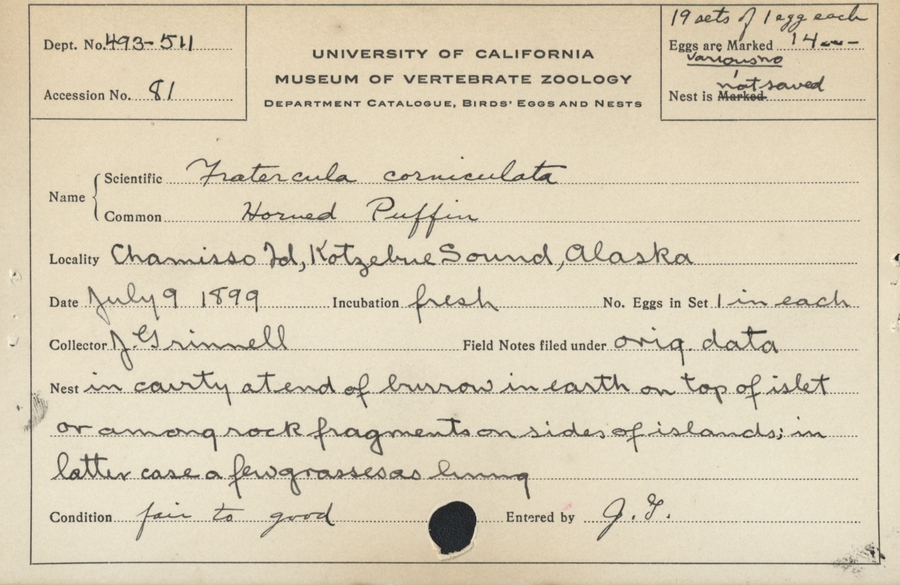 19 sets of 1 egg each
Dept. No. 493-511
Eggs are Marked 14
various no
UNIVERSITY OF CALIFORNIA
MUSEUM OF VERTEBRATE ZOOLOGY
DEPARTMENT CATALOGUE, BIRDS' EGGS AND NESTS
Accession No. 81
not saved
Nest is Marked
Name
Scientific Fratercula corniculata
Common Horned Puffin
Locality Chamisso Id, Kotzebue Sound, Alaska
Date July 9 1899 Incubation fresh No. Eggs in Set 1 in each
Collector J Grinnell Field Notes filed under orig. data
Nest in cavity at end of burrow in earth on top of islet
or among rock fragments on sides of islands; in
latter case a few grasses as lining
Condition fair to good Entered by